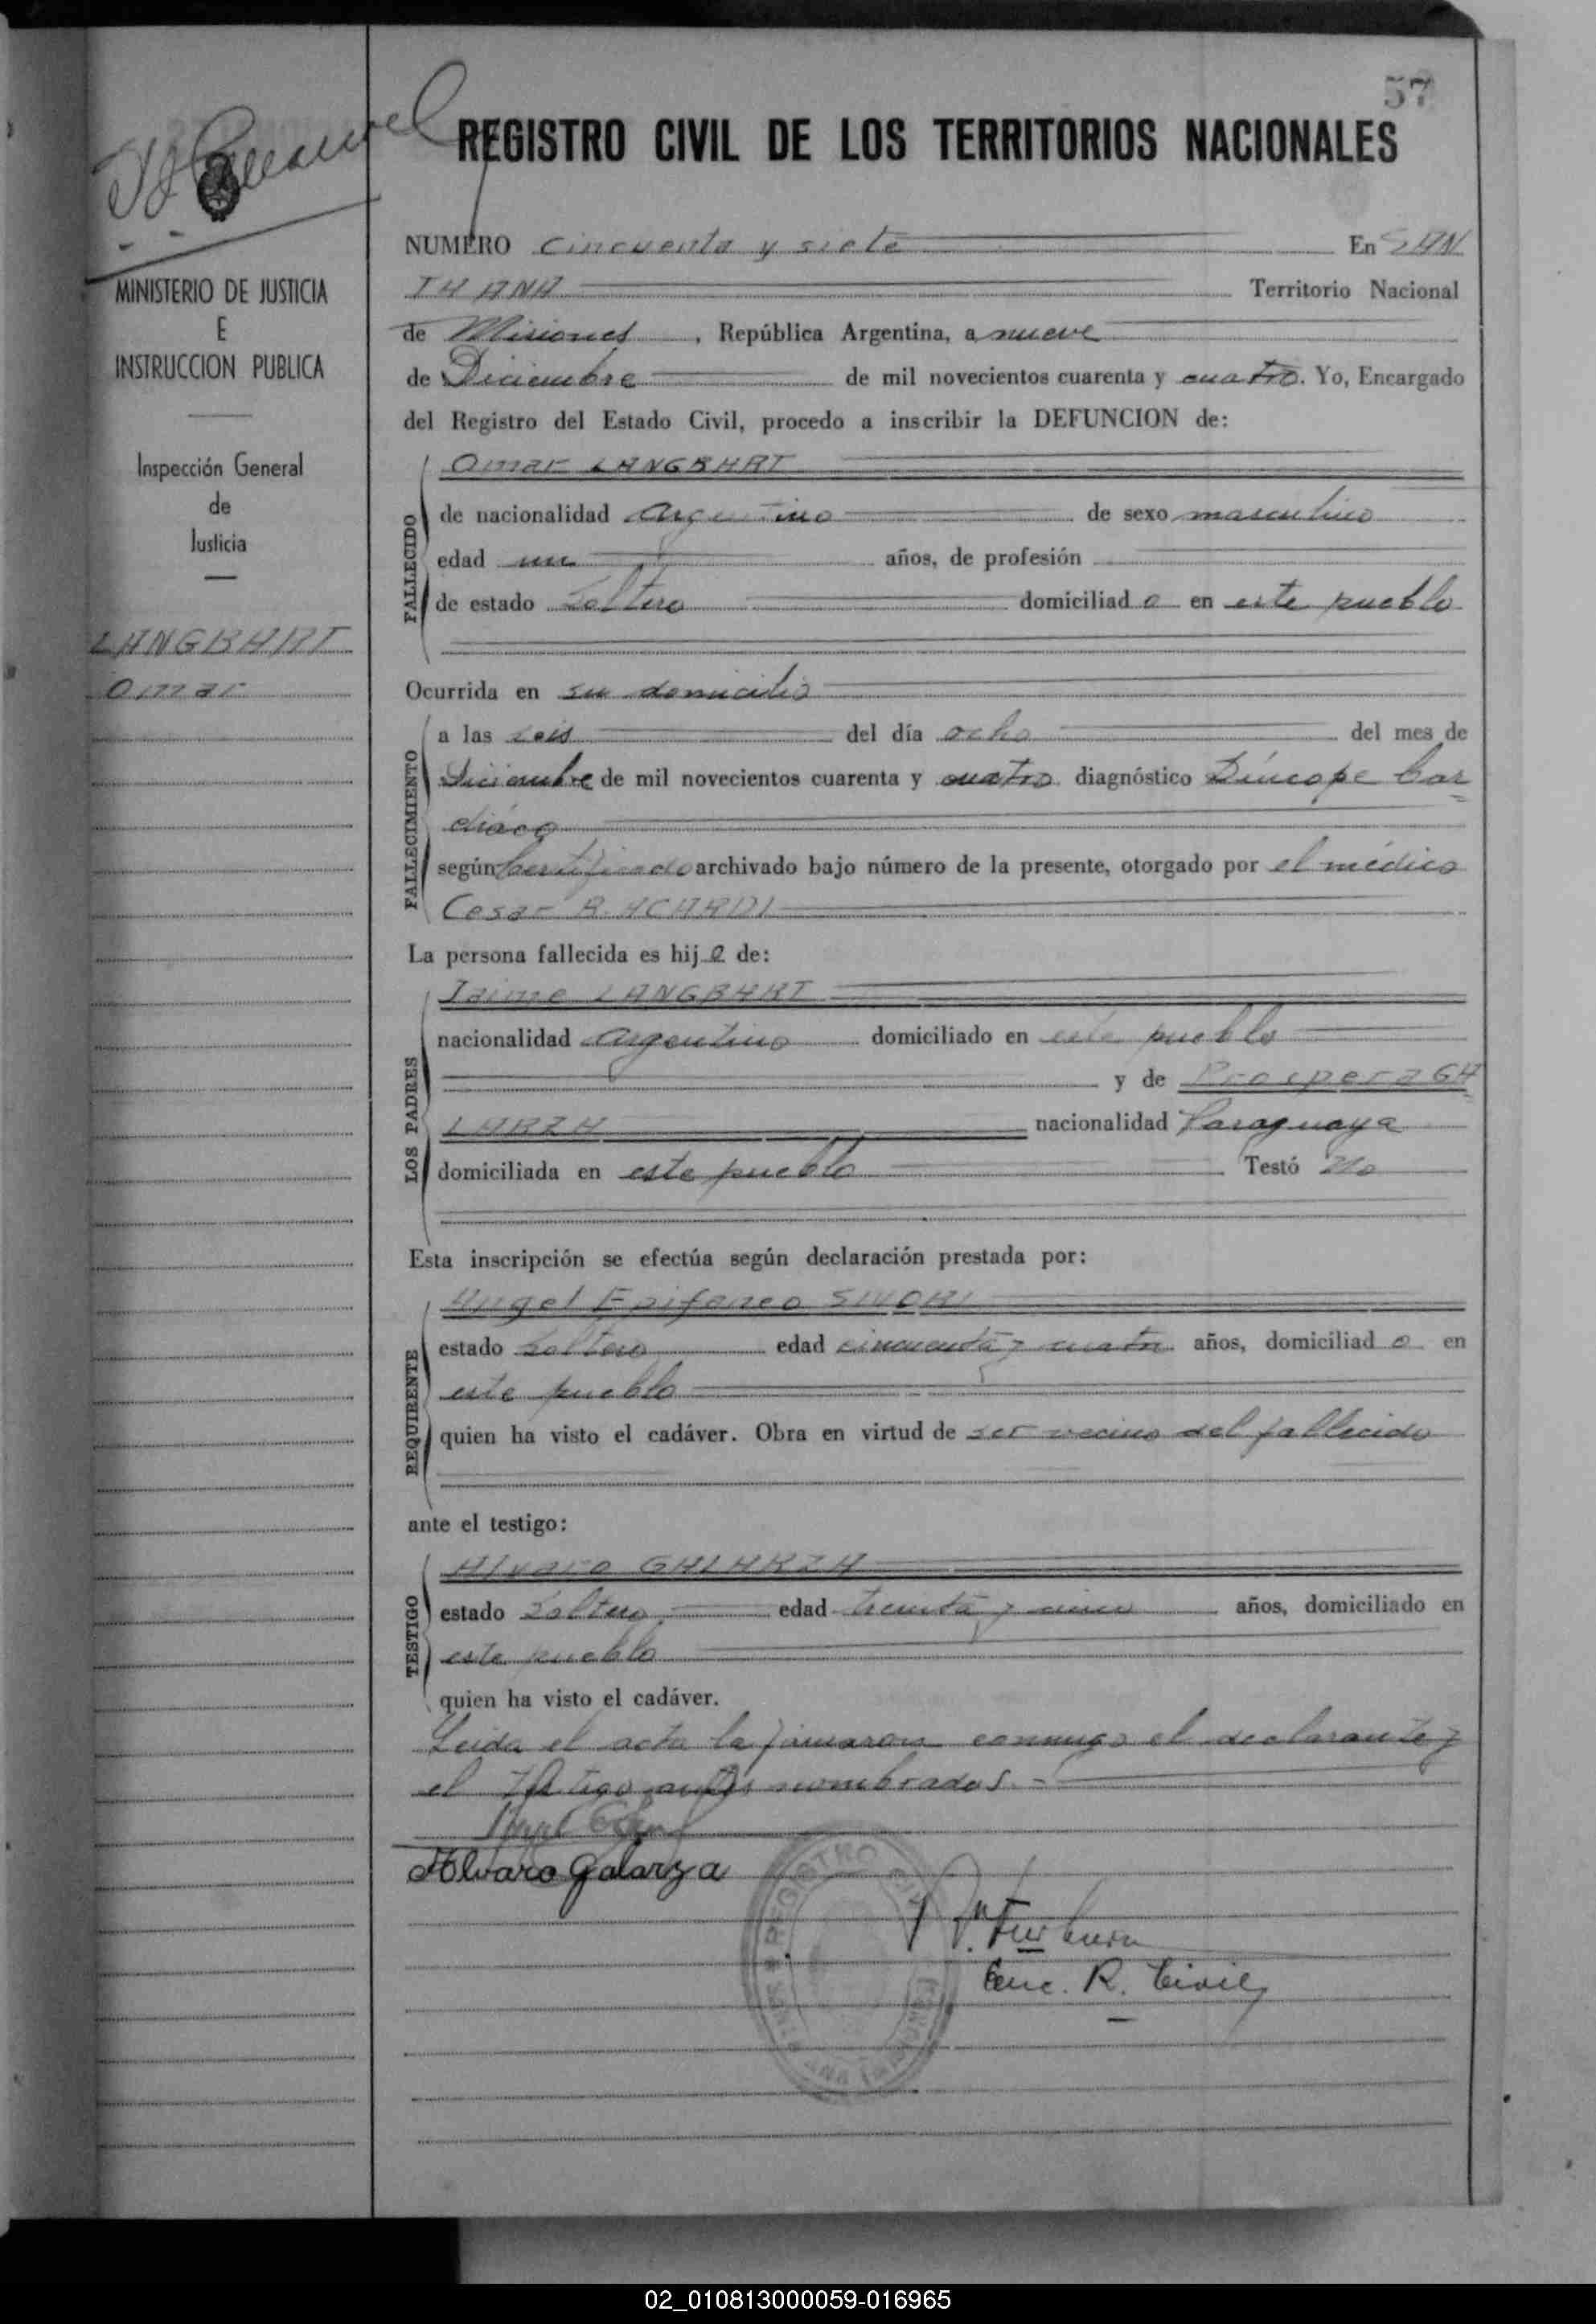 57
REGISTRO CIVIL DE LOS TERRITORIOS NACIONALES
MINISTERIO DE JUSTICIA
E
INSTRUCCION PUBLICA
Inspección General
de
Justicia
LANGBART
Omar
NUMERO cincuenta y siete En SAN
IGNACIO Territorio Nacional
de Misiones, República Argentina, a nueve
de Diciembre de mil novecientos cuarenta y cuatro. Yo, Encargado
del Registro del Estado Civil, procedo a inscribir la DEFUNCION de:
FALLECIDO
Omar LANGBART
de nacionalidad argentino de sexo masculino
edad un años, de profesión
de estado soltero domiciliado en este pueblo
Ocurrida en su domicilio
FALLECIMIENTO
a las seis del día ocho del mes de
Diciembre de mil novecientos cuarenta y cuatro diagnóstico Síncope Car-
díaco
según certificado archivado bajo número de la presente, otorgado por el médico
Cesar R. ACARDI
La persona fallecida es hijo de:
LOS PADRES
Jaime LANGBART
nacionalidad argentino domiciliado en este pueblo
y de Prospera GA-
LARZA nacionalidad Paraguaya
domiciliada en este pueblo Testó No
Esta inscripción se efectúa según declaración prestada por:
REQUIRENTE
Angel Epifaneo
estado soltero edad cincuenta y cuatro años, domiciliado en
este pueblo
quien ha visto el cadáver. Obra en virtud de ser vecino del fallecido
ante el testigo:
TESTIGO
Alvaro GALARZA
estado soltero edad treinta y cinco años, domiciliado en
este pueblo
quien ha visto el cadáver.
Leida el acta la firmaron conmigo el declarante y
el testigo antes nombrados.-
Alvaro Galarza
Enc. R. Civil
REGISTRO
02_010813000059-016965